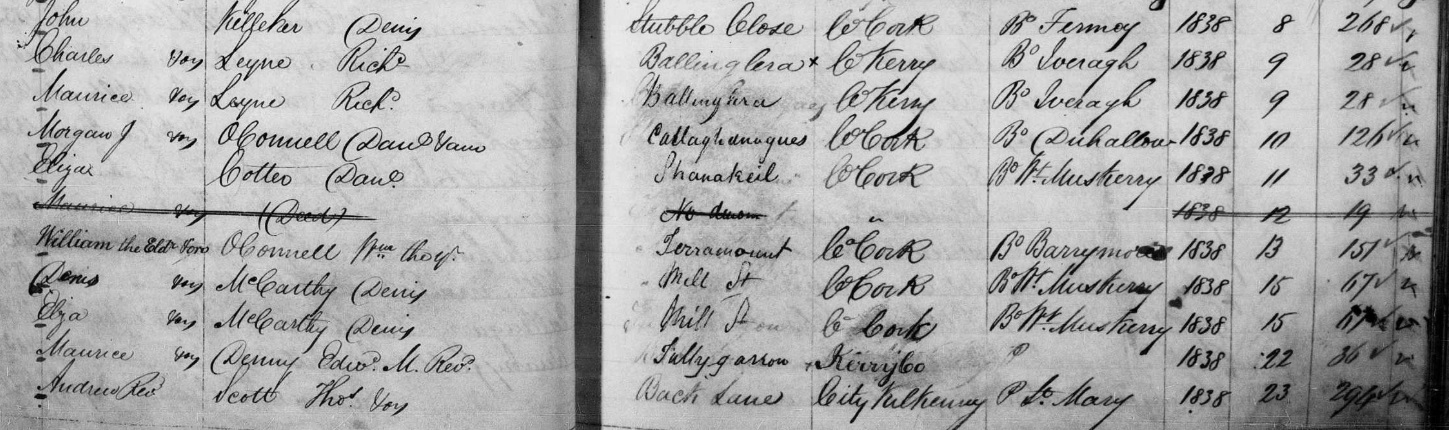 John Kelleher Denis Stubble Close Co Cork Bo Fermoy 1838 8 268
Charles Leyne Richd Ballinglera x Co Kerry Bo Iveragh 1838 9 28
Maurice Leyne Richd Ballinglera Co Kerry Bo Iveragh 1838 9 28
Morgan J OConnell Danl Co Cork Bo Duhallow 1838 10 126
Eliza Cotter Danl Shanakeil Co Cork Bo Wt Muskerry 1838 11 33
Maurice (Deed) 1838 12 19
William the Eldr OConnell Wm the yr Co Cork Bo Barrymore 1838 13 151
Denis McCarthy Denis Mill St Co Cork Bo Wt Muskerry 1838 15 67
Eliza McCarthy Denis Mill St Co Cork Bo Wt Muskerry 1838 15
Maurice Denny Edwd M. Revd Tullygarron Kerry Co P 1838 22 36
Andrew Revd Scott Thos Back Lane City Kilkenny P St Mary 1838 23 294